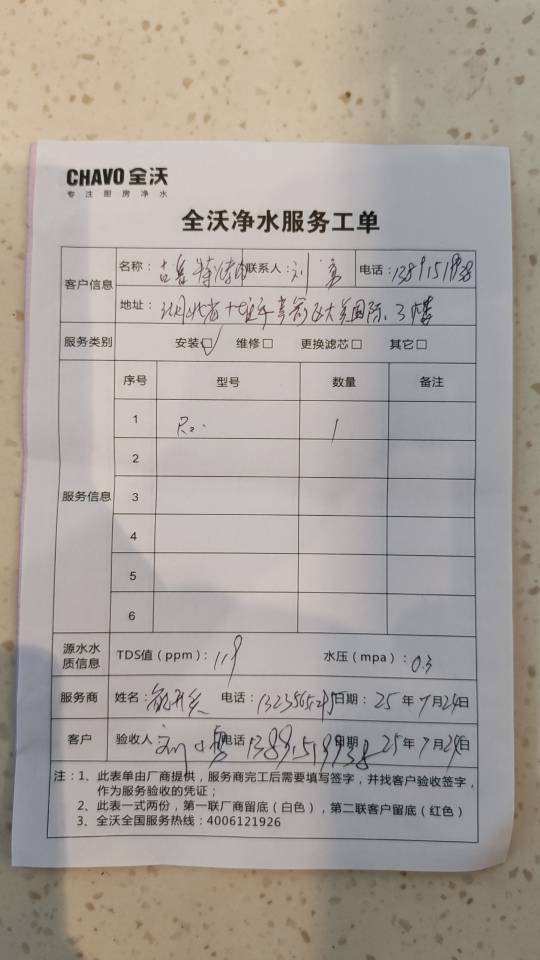 CHAVO 全沃
专注厨房净水
全沃净水服务工单
客户信息 名称： 联系人：刘 电话：
地址：湖北省十堰市 国际3楼
服务类别 安装☑ 维修□ 更换滤芯□ 其它□
服务信息 序号 型号 数量 备注
1 1
2
3
4
5
6
源水水质信息 TDS值（ppm）：119 水压（mpa）：0.3
服务商 姓名： 电话： 日期：25年7月24日
客户 验收人 刘 电话 日期 25年7月24日
注：1、此表单由厂商提供，服务商完工后需要填写签字，并找客户验收签字，
作为服务验收的凭证；
2、此表一式两份，第一联厂商留底（白色），第二联客户留底（红色）
3、全沃全国服务热线：4006121926